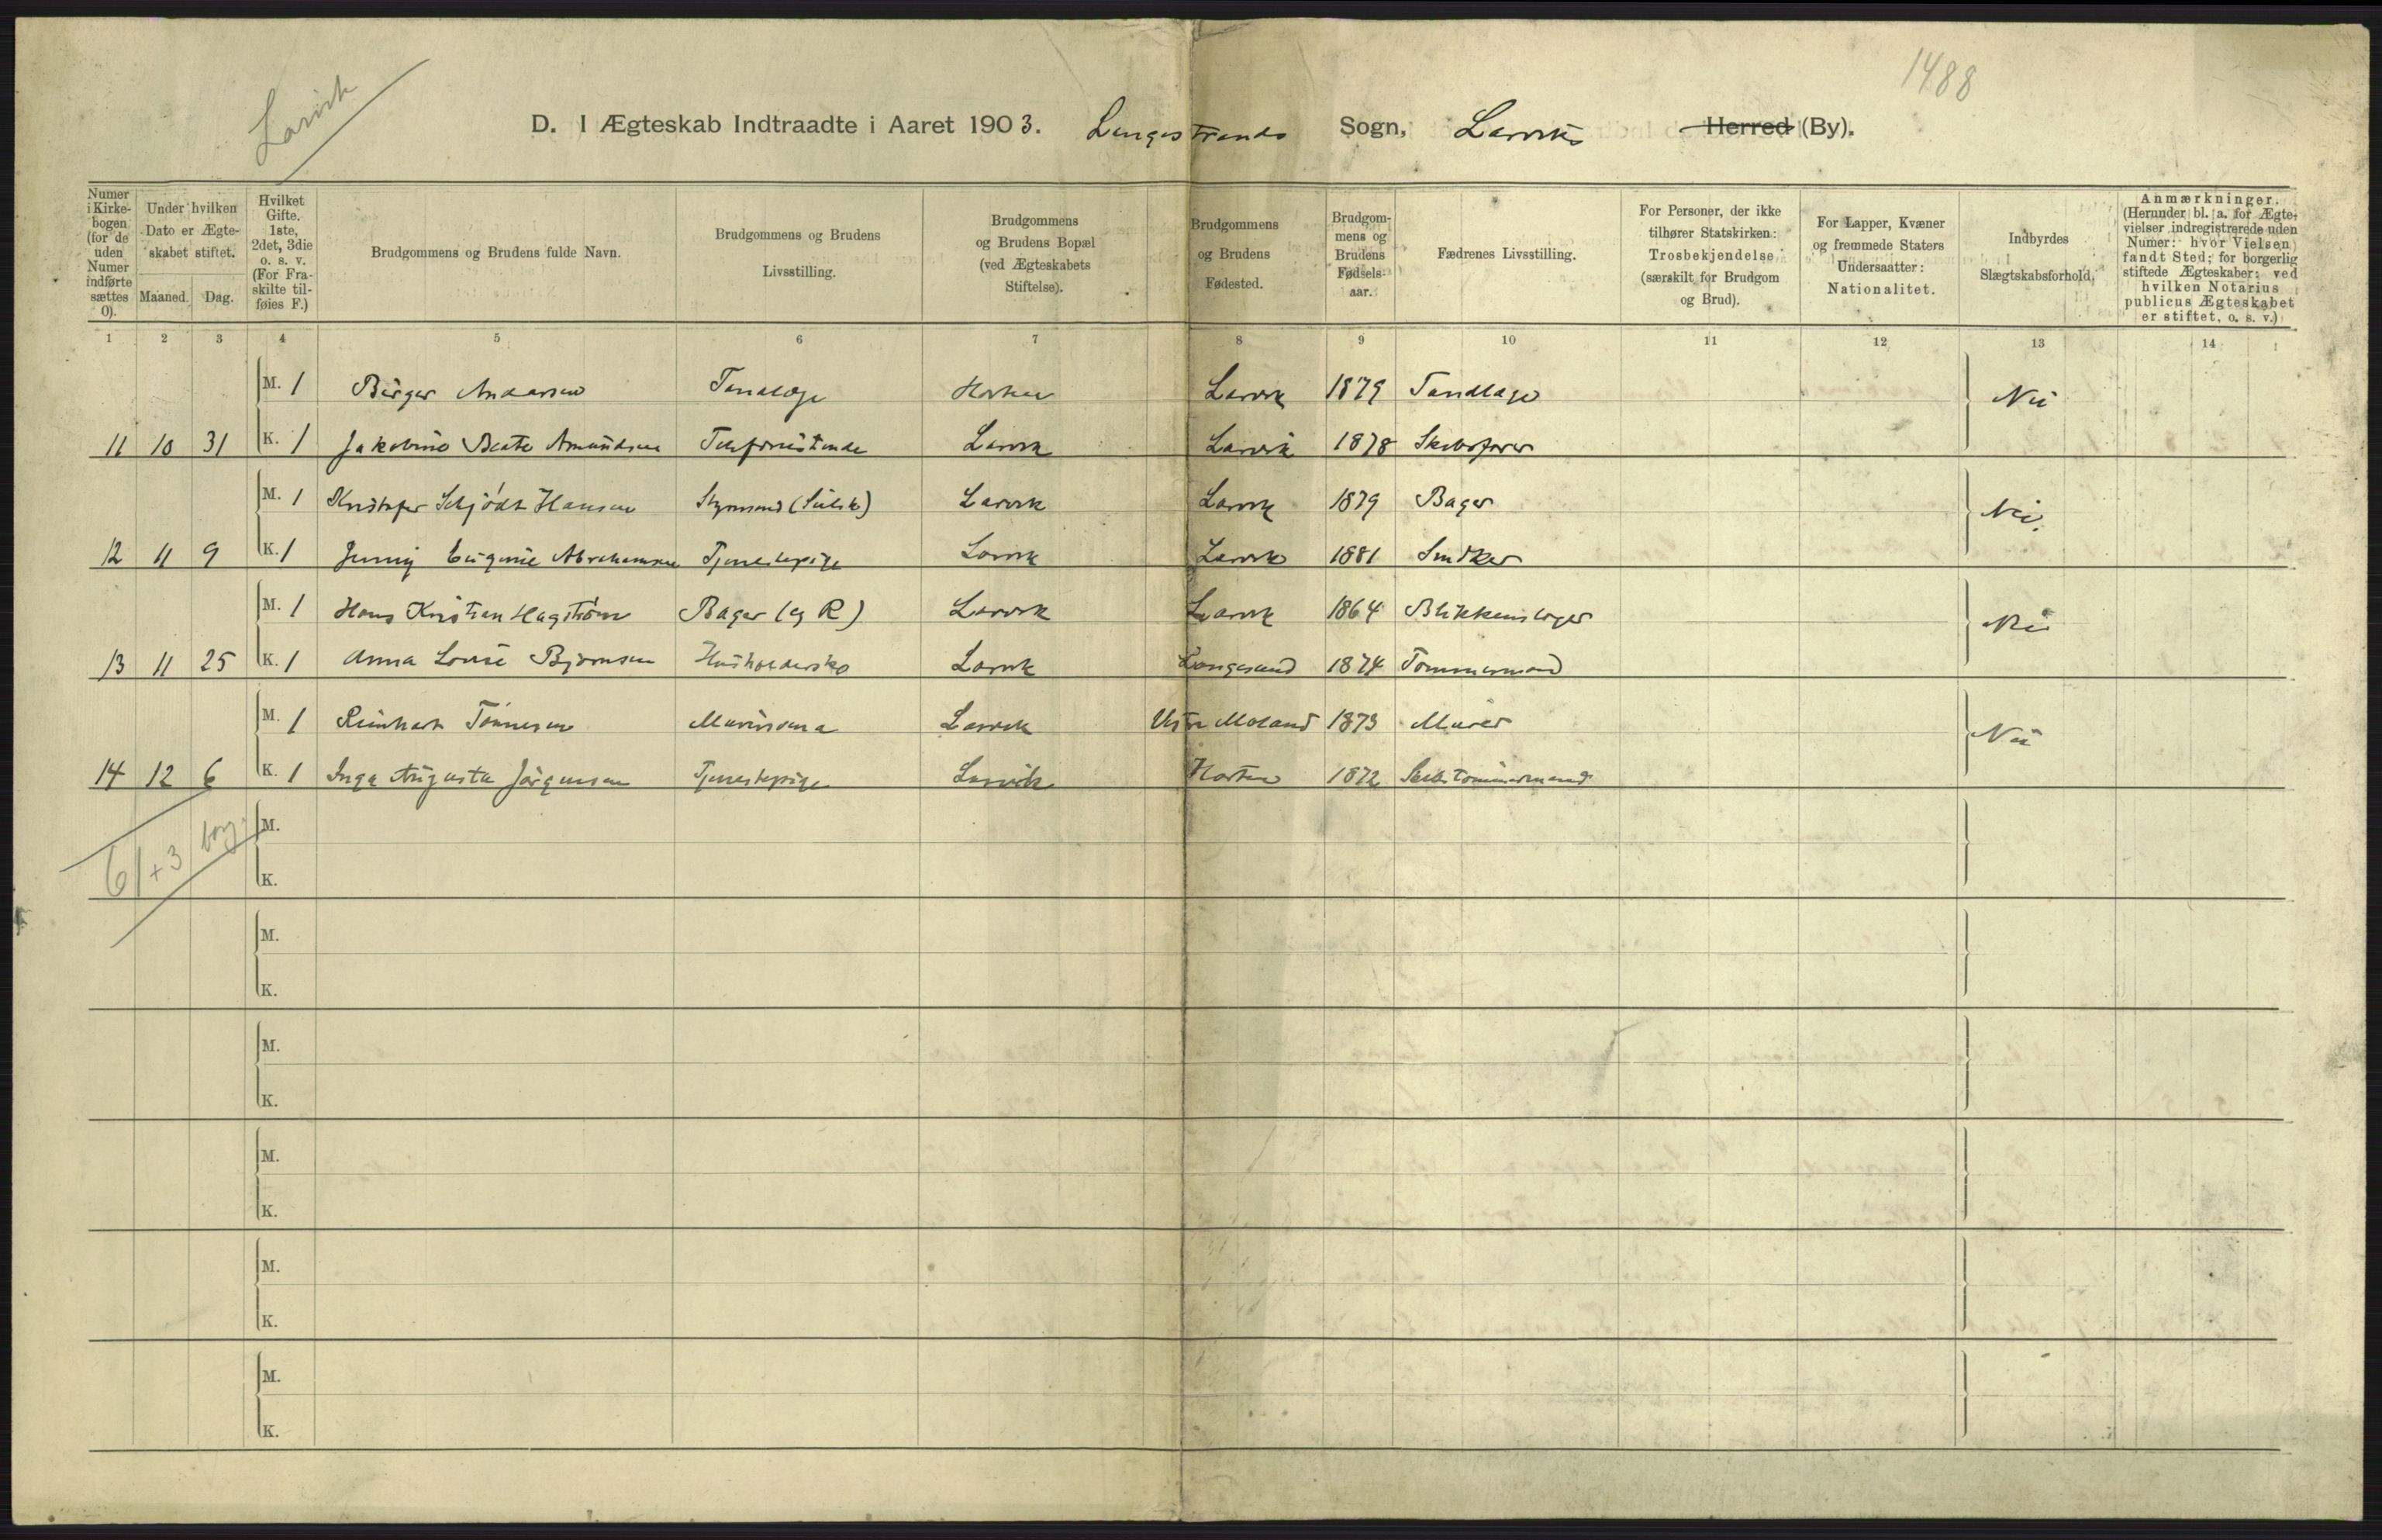 Larvik
1488
D. I Ægteskab Indtraadte i Aaret 1903. Langestrands Sogn, Larviks Herred (By).
Numer i Kirkebogen (for de uden Numer indførte sættes 0).
Under hvilken Dato er Ægteskabet stiftet.
Maaned. Dag.
Hvilket Gifte. 1ste, 2det, 3die o. s. v. (For Fraskilte tilføies F.)
Brudgommens og Brudens fulde Navn.
Brudgommens og Brudens Livsstilling.
Brudgommens og Brudens Bopæl (ved Ægteskabets Stiftelse).
Brudgommens og Brudens Fødested.
Brudgommens og Brudens Fødselsaar.
Fædrenes Livsstilling.
For Personer, der ikke tilhører Statskirken: Trosbekjendelse (særskilt for Brudgom og Brud).
For Lapper, Kvæner og fremmede Staters Undersaatter: Nationalitet.
Indbyrdes Slægtskabsforhold.
Anmærkninger. (Herunder bl. a. for Ægtevielser indregistrerede uden Numer: hvor Vielsen fandt Sted; for borgerlig stiftede Ægteskaber: ved hvilken Notarius publicus Ægteskabet er stiftet, o. s. v.)
1 2 3 4 5 6 7 8 9 10 11 12 13 14
M. 1 Birger Andersen Tandlæge Horten Larvik 1879 Tandlæge Nei
11 10 31 K. 1 Jakobine Beate Amundsen Larvik Larvik 1878 Skibsfører
M. 1 Kristofer Schjødt Hansen Styrmand Larvik Larvik 1879 Bager Nei.
12 11 9 K. 1 Jenny Eugenie Abrahamsen Tjenestepige Larvik Larvik 1881 Snedker
M. 1 Hans Kristian Hagstrøm Bager (eg R) Larvik Larvik 1864 Blikkenslager Nei
13 11 25 K. 1 Anna Lovise Bjørnsen Husholderske Larvik Langesund 1874 Tømmermand
M. 1 Reinhart Tønnesen Larvik Vestre Moland 1873 Murer Nei
14 12 6 K. 1 Inga Augusta Jørgensen Tjenestepige Larvik Horten 1872 Skibstømmermand
61+3 borg.
M.
K.
M.
K.
M.
K.
M.
K.
M.
K.
M.
K.